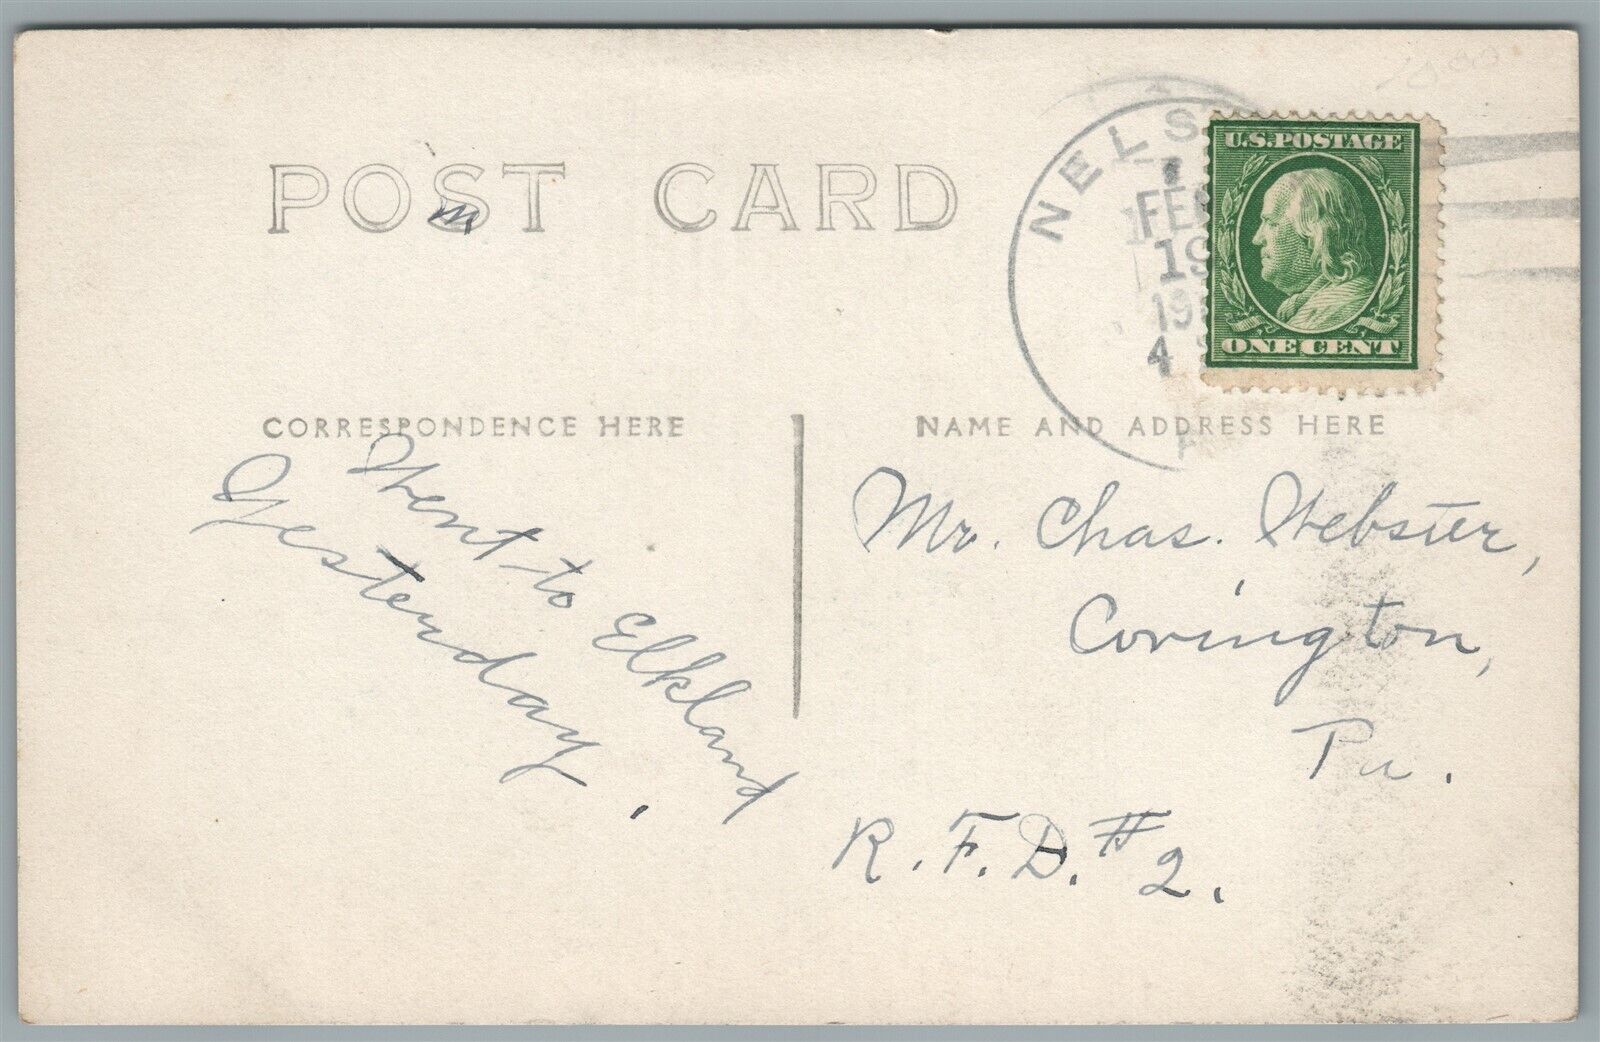 POST CARD
NELS
FE
19
19
4
U.S.POSTAGE
ONE CENT
CORRESPONDENCE HERE
NAME AND ADDRESS HERE
Went to Elkland
Yesterday.
Mr. Chas. Webster,
Covington,
Pa.
R.F.D. #2.